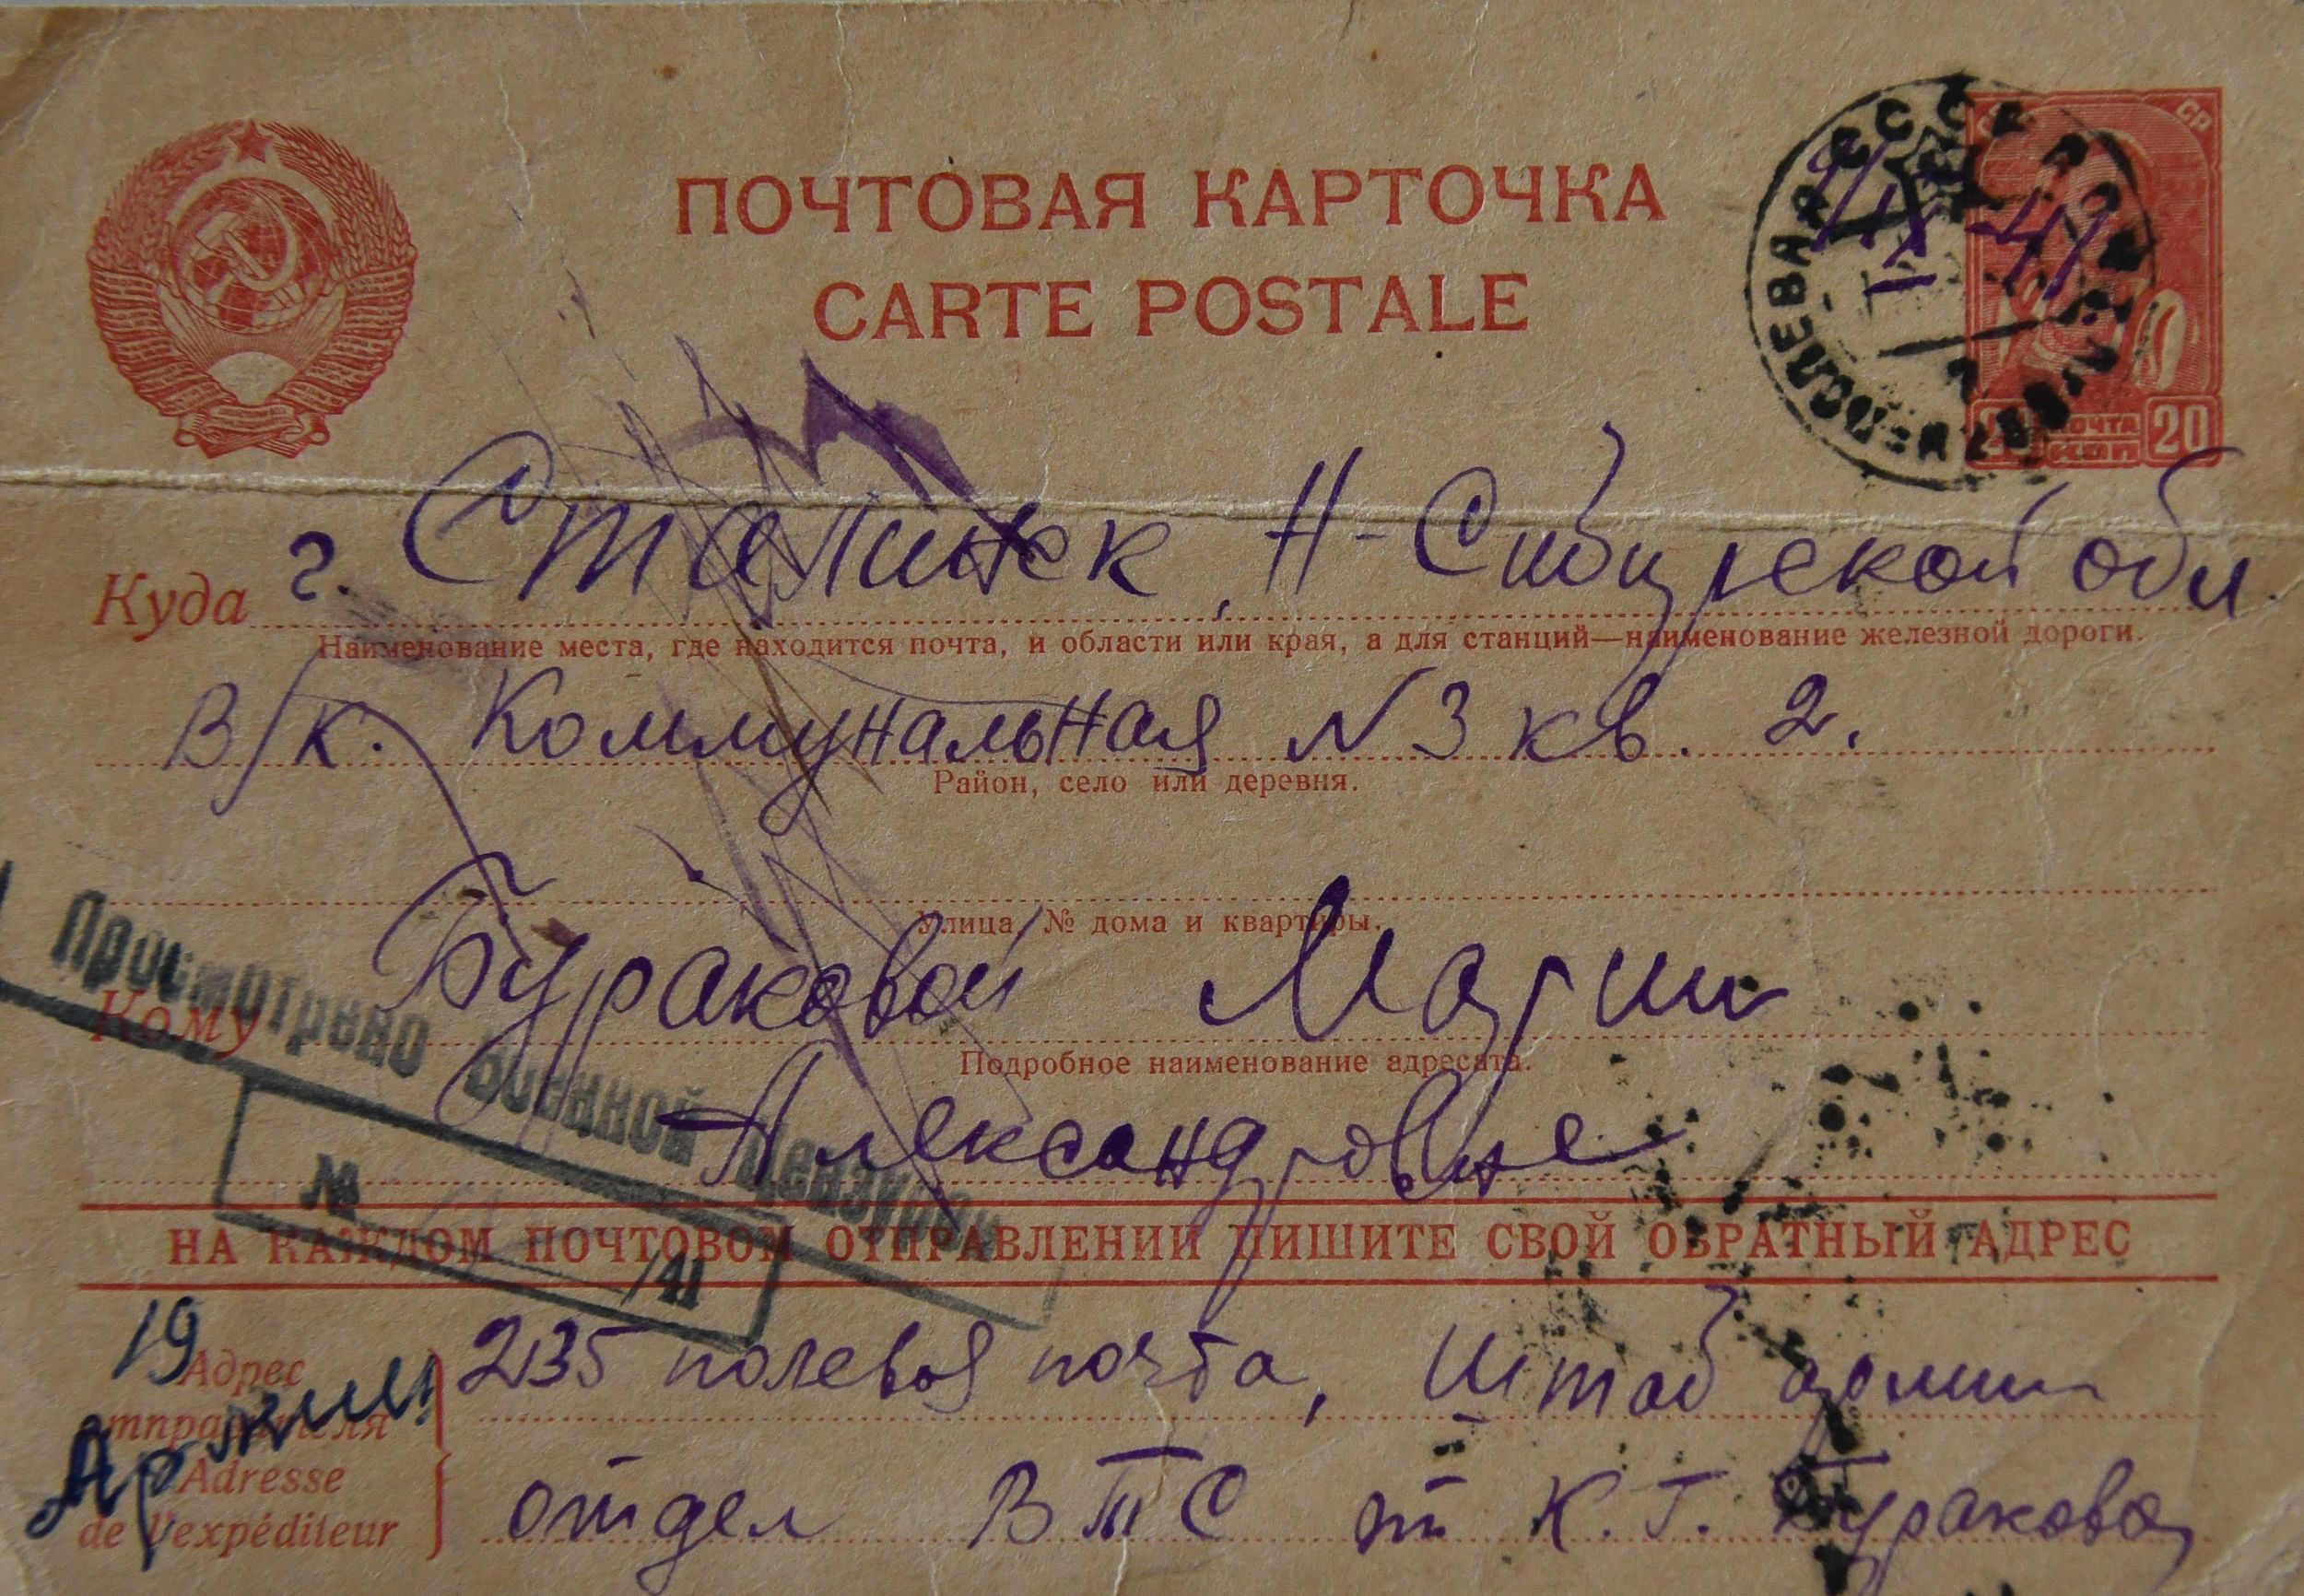 ПОЧТОВАЯ КАРТОЧКА
CARTE POSTALE
ПОЧТА 20
КОП
4/IX-41
Куда г. Сталинск, Н-Сибирской обл.
Наименование места, где находится почта, и области или края, а для станций—наименование железной дороги.
В/к. Коммунальная N 3 кв. 2.
Район, село или деревня.
Улица, № дома и квартиры.
Просмотрено Военной Цензурой
Кому Бураковой Марии
Подробное наименование адресата.
Александровне
№ /41
НА КАЖДОМ ПОЧТОВОМ ОТПРАВЛЕНИИ ПИШИТЕ СВОЙ ОБРАТНЫЙ АДРЕС
19 Армии
Адрес отправителя
Adresse
de l'expéditeur
235 полевая почта, Штаб армии
отдел ВТС от К. Г. Буракова